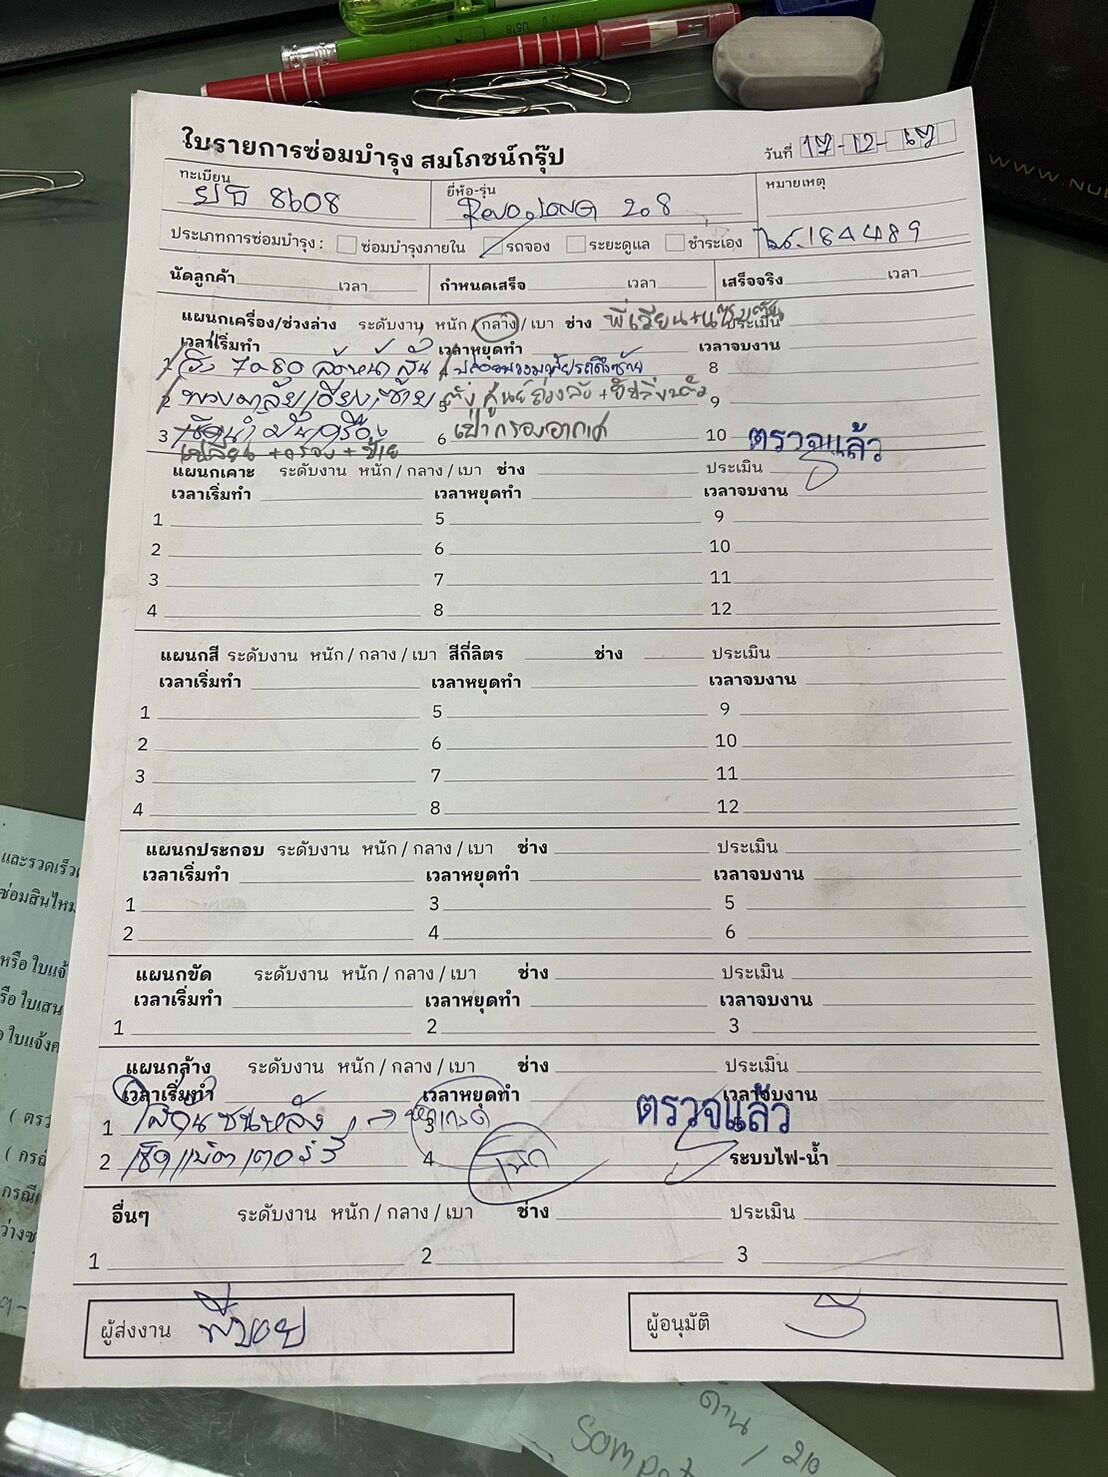 ใบรายการซ่อมบำรุง สมโภชน์กรุ๊ป
วันที่ 17-12-67
ทะเบียน ยธ 8608
ยี่ห้อ-รุ่น Revo LONG 2.8
หมายเหตุ
ประเภทการซ่อมบำรุง : ซ่อมบำรุงภายใน รถจอง ระยะดูแล ชำระเอง
184489
นัดลูกค้า เวลา กำหนดเสร็จ เวลา เสร็จจริง เวลา
แผนกเครื่อง/ช่วงล่าง ระดับงาน หนัก / กลาง / เบา ช่าง พี่เวียน+ ประเมิน
เวลาเริ่มทำ เวลาหยุดทำ เวลาจบงาน
1 วิ่ง 70-80 ล้อหน้าสั่น 8
2 พวงมาลัยเอียงซ้าย 5 ตั้งศูนย์ถ่วงล้อ+ 9
3 เช็คน้ำมันเครื่อง 6 เป่ากรองอากาศ 10
เปลี่ยน+กรอง+ป้าย
ตรวจแล้ว
แผนกเคาะ ระดับงาน หนัก / กลาง / เบา ช่าง ประเมิน
เวลาเริ่มทำ เวลาหยุดทำ เวลาจบงาน
1 5 9
2 6 10
3 7 11
4 8 12
แผนกสี ระดับงาน หนัก / กลาง / เบา สีกี่ลิตร ช่าง ประเมิน
เวลาเริ่มทำ เวลาหยุดทำ เวลาจบงาน
1 5 9
2 6 10
3 7 11
4 8 12
แผนกประกอบ ระดับงาน หนัก / กลาง / เบา ช่าง ประเมิน
เวลาเริ่มทำ เวลาหยุดทำ เวลาจบงาน
1 3 5
2 4 6
แผนกขัด ระดับงาน หนัก / กลาง / เบา ช่าง ประเมิน
เวลาเริ่มทำ เวลาหยุดทำ เวลาจบงาน
1 2 3
แผนกล้าง ระดับงาน หนัก / กลาง / เบา ช่าง ประเมิน
เวลาเริ่มทำ เวลาหยุดทำ เวลาจบงาน
1 ไส้กันชนหลัง 3
ตรวจแล้ว
2 เช็คแบตเตอร์รี่ 4 ระบบไฟ-น้ำ
อื่นๆ ระดับงาน หนัก / กลาง / เบา ช่าง ประเมิน
1 2 3
ผู้ส่งงาน พี่บอย
ผู้อนุมัติ
และรวดเร็ว
ซ่อมสินไหม
หรือ ใบแจ้
รือ ใบเสน
ใบแจ้งค
( ตรว
( กรณี
กรณี
ว่างซ
ด้าน / 210